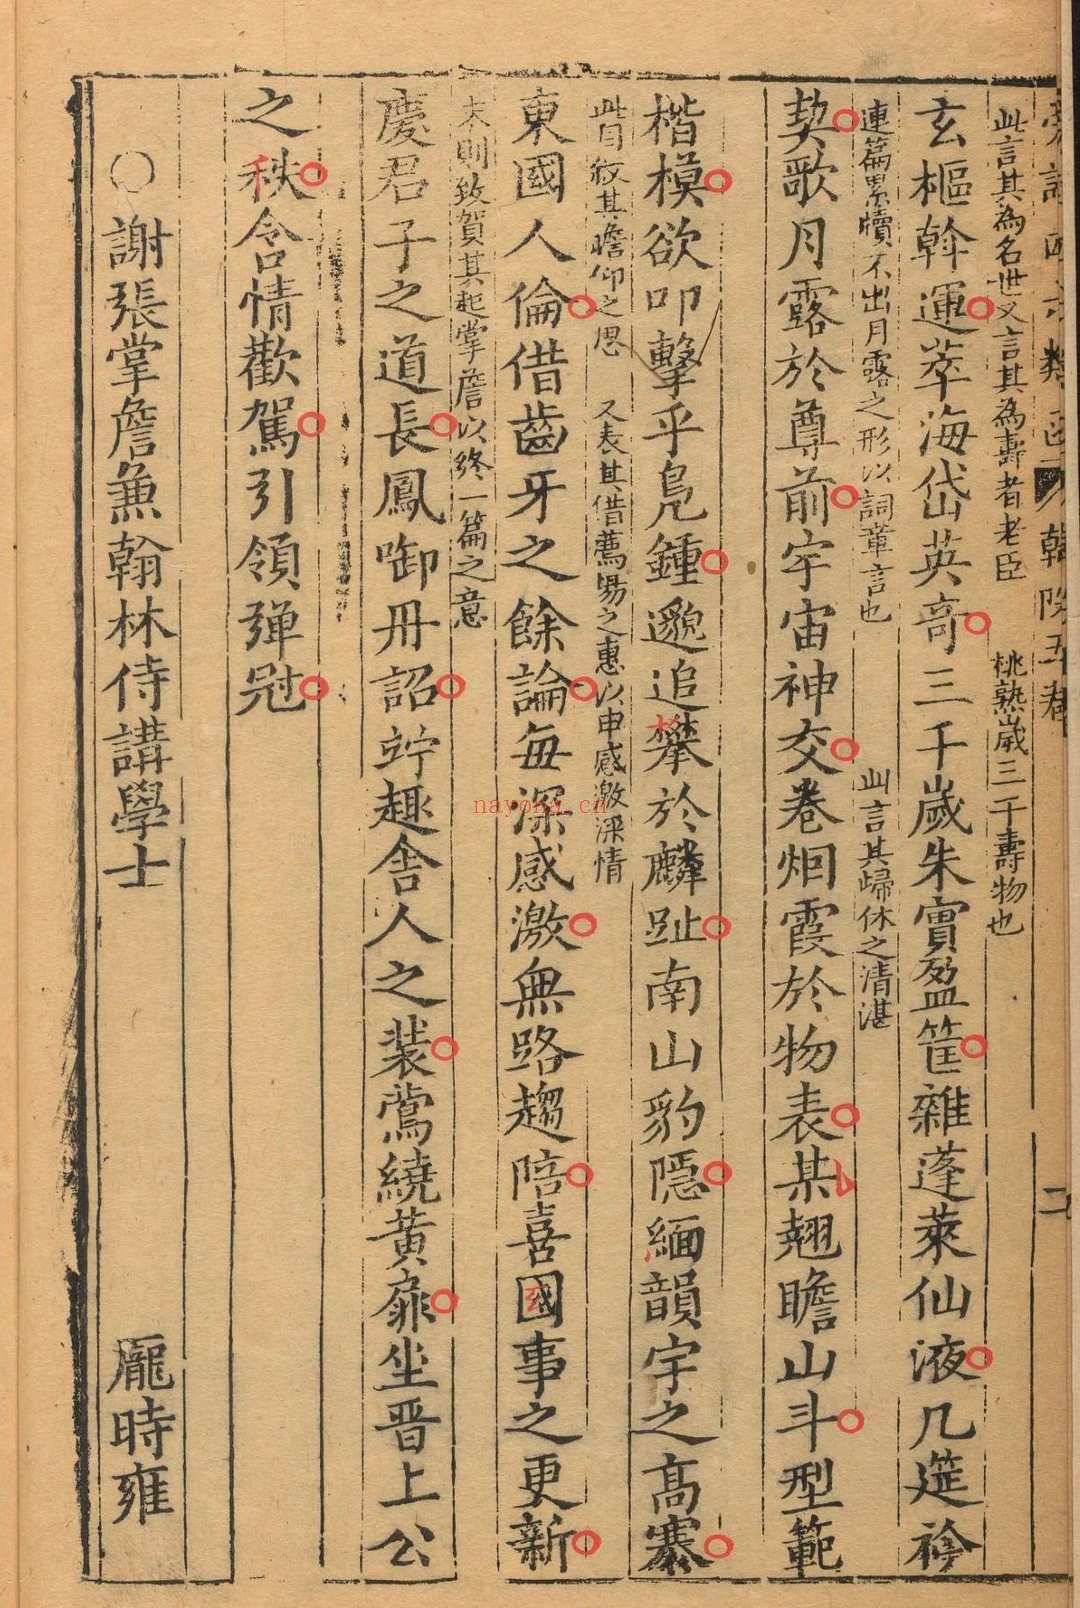 翰院五卷
二
此言其為名世又言其為壽耇老臣　桃熟歲三千壽物也
玄樞斡運萃海岱英奇三千歲朱實盈筐雜蓬萊仙液几筵衿
連篇累牘不出月露之形以詞章言也　此言其歸休之清湛
契歌月露於尊前宇宙神交卷烟霞於物表某翹瞻山斗型範
楷模欲叩擊乎鳧鍾邈追攀於麟趾南山豹隱緬韻宇之高褰
此叙其瞻仰之思　又表其借薦揚之惠以申感激深情
東國人倫借齒牙之餘論每深感激無路趨陪喜國事之更新
末則致賀其起掌詹以終一篇之意
慶君子之道長鳳啣丹詔竚趣舍人之裝鶯繞黄扉坐晋上公
之秩含情歡駕引領弹冠
○　謝張掌詹兼翰林侍講學士　龐時雍
nayona.cn